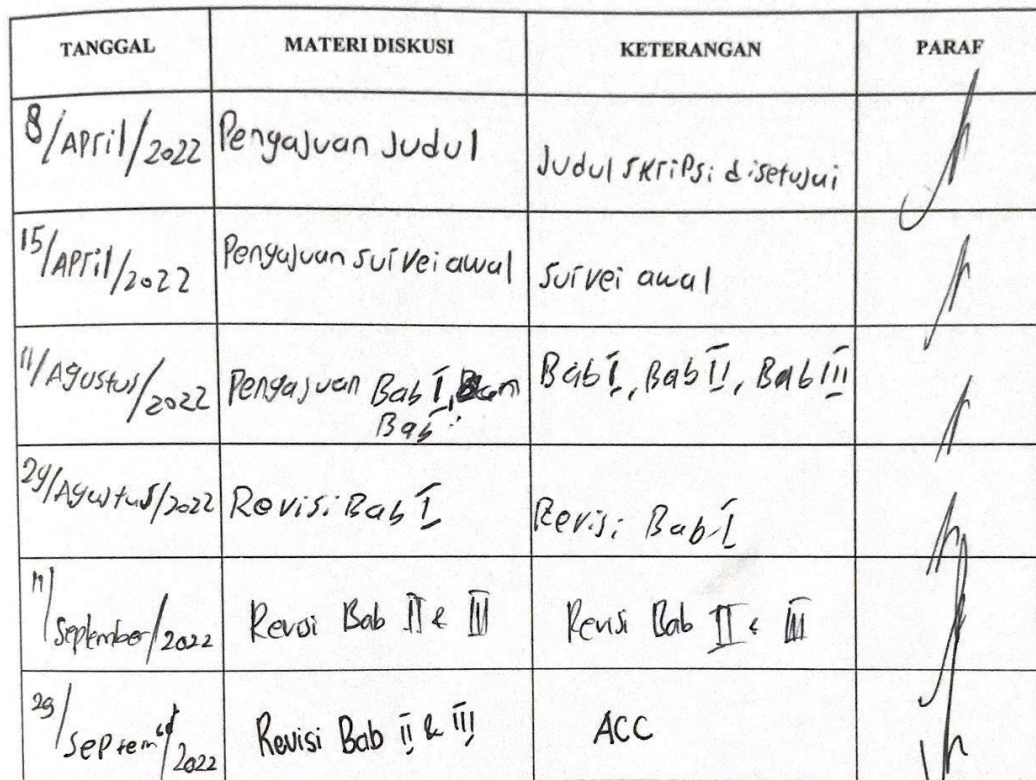 TANGGAL MATERI DISKUSI KETERANGAN PARAF
8/April/2022 Pengajuan Judul Judul skripsi disetujui
15/April/2022 Pengajuan survei awal survei awal
11/Agustus/2022 Pengajuan Bab I, Bab I, Bab II, Bab III
Bab
29/Agustus/2022 Revisi Bab I Revisi Bab I
11/September/2022 Revisi Bab II & III Revisi Bab II & III
29/September/2022 Revisi Bab II & III ACC